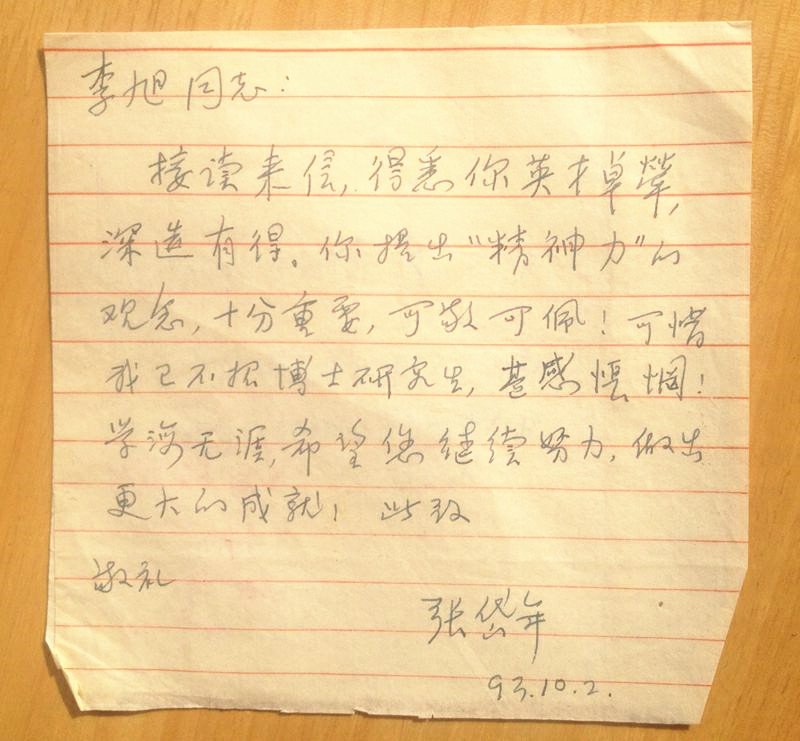 李旭同志:
接读来信,得悉你英才卓荦,
深造有得。你提出“精神力”的
观念,十分重要,可敬可佩!可惜
我已不招博士研究生,甚感怅惘!
学海无涯,希望您继续努力,做出
更大的成就! 此致
敬礼
张岱年
93.10.2.